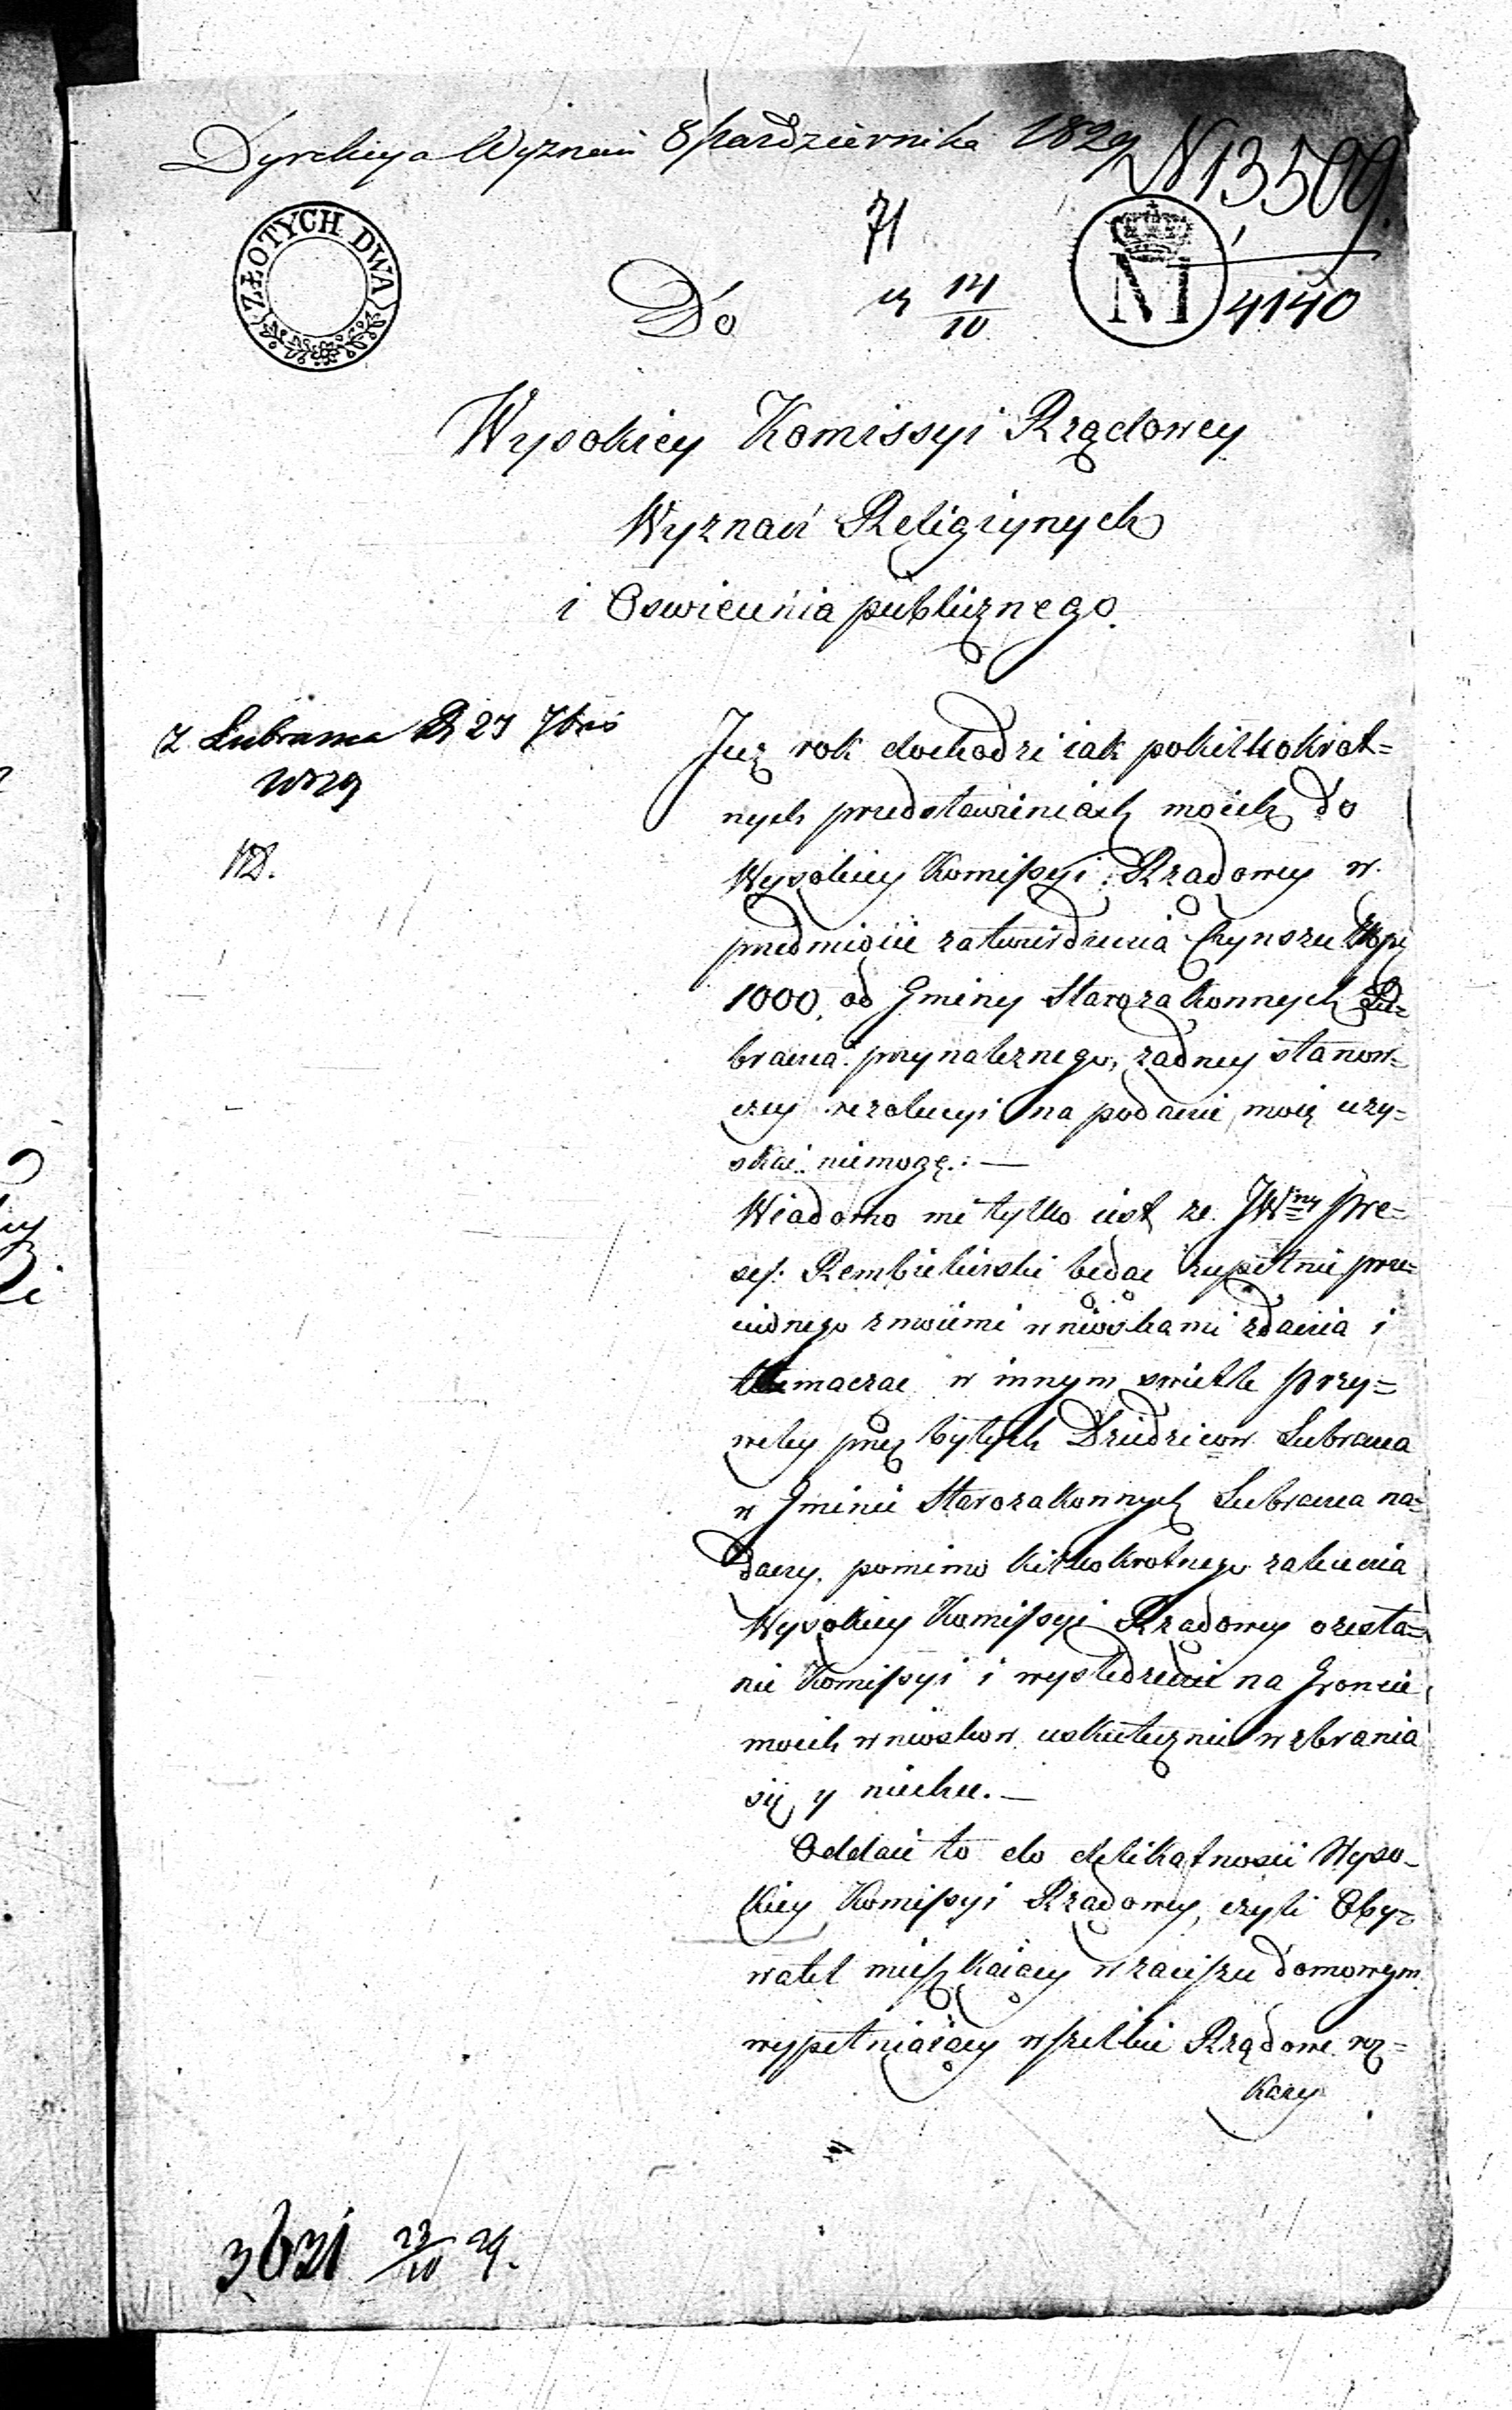 Dyrekcya Wyznań 8 Pazdziernika 1829
N 13,509.
71
14/10
4140
ZŁOTYCH DWA
M
Do
Wysokiey Komissyi Rządowey
Wyznań Religiynych
i Oswiecenia publicznego.
Z Lubrańca D 27 7bris
1829
Już rok dochodzi iak pokilkokrot=
nych przedstawieniach moich do
Wysokiey Komissyi Rządowey w
przedmiocie zatwierdzenia Czynszu
1000, od Gminy Starozakonnych Lu=
brańca przynależnego, żadney stanow=
czey rezolucyi na podanie moie uzy=
skać niemogę. —
Wiadomo mi tylko iest że JWny Pre=
zes Rembieliński będąc zupełnie prze=
ciwnego z moiemi wnioskami zdania i
tłomacząc w innym swietle Przy=
wiley przez byłych Dziedziców Lubrańca
w Gminie Starozakonnych Lubrańca na=
dany, pomimo kilkokrotnego zalecenia
Wysokiey Komissyi Rządowey o zesła=
nie Komissyi i wysledzenie na Gruncie
moich wniosków uskutecznić wzbrania
się y niechce. —
Oddaię to do delikatnosci Wyso=
kiey Komissyi Rządowey, czyli Oby=
watel mieszkaiący w zaciszu domowym
wypełniaiący wszelkie Rządowe roz=
kazy
3631 23/10 29.